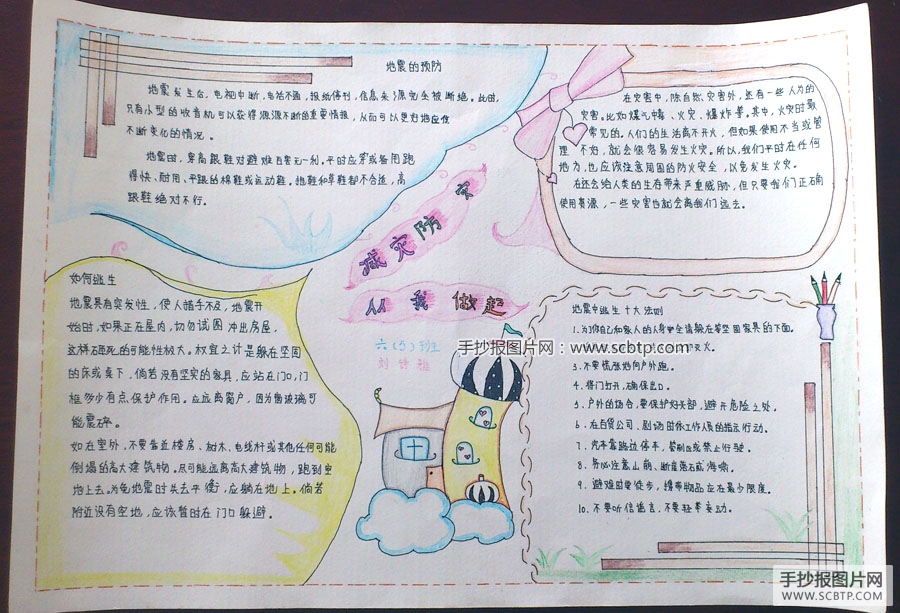 地震的预防
地震发生后，电视中断，电话不通，报纸停刊，信息来源完全被断绝。此时，
只有小型的收音机可以获得源源不断的重要情报，从而可以更好地应付
不断变化的情况。
地震时，穿高跟鞋对避难百害无一利。平时应穿或备用跑
得快、耐用、平跟的棉鞋或运动鞋。拖鞋和草鞋都不合适，高
跟鞋绝对不行。
在灾害中，除自然灾害外，还有一些人为的
灾害。比如煤气中毒、火灾、爆炸等。其中，火灾时最
常见的。人们的生活离不开火，但如果使用不当或管
理不好，就会很容易发生火灾。所以，我们平时在任何
地方，也应该注意周围的防火安全，以免发生火灾。
在还会给人类的生存带来严重威胁，但只要我们正确
使用资源，一些灾害也就会离我们远去。
减灾防灾
从我做起
六（5）班
刘诗雅
手抄报图片网：www.scbtp.com
如何逃生
地震具有突发性，使人措手不及，地震开
始时，如果正在屋内，切勿试图冲出房屋，
这样砸死的可能性极大。权宜之计是躲在坚固
的床或桌下，倘若没有坚实的家具，应站在门口，门
框多少有点保护作用。应远离窗户，因为窗玻璃可
能震碎。
如在室外，不要靠近楼房、树木、电线杆或其他任何可能
倒塌的高大建筑物。尽可能远离高大建筑物，跑到空
地上去。为免地震时失去平衡，应躺在地上。倘若
附近没有空地，应该暂时在门口躲避。
地震中逃生十大法则
1、为了您自己和家人的人身安全请躲在等坚固家具的下面。
3、不要慌张地向户外跑。
4、将门打开，确保出口。
5、户外的场合，要保护好头部，避开危险之处。
6、在百货公司、剧场时依工作人员的指示行动。
7、汽车靠路边停车，管制区域禁止行驶。
8、务必注意山崩、断崖落石或海啸。
9、避难时要徒步，携带物品应在最少限度。
10、不要听信谣言，不要轻举妄动。
手抄报图片网
WWW.SCBTP.COM